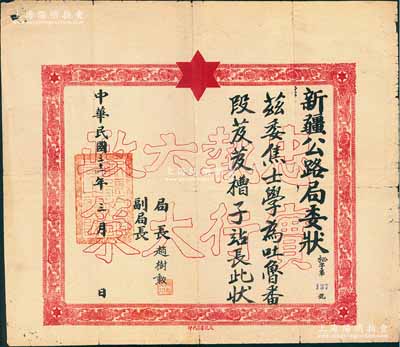 新疆公路局委狀
字第 137 號
茲委焦士學為吐魯番
段芨芨槽子站長此狀
局長 趙樹勳
副局長
中華民國三十一年三月 日
忠實
執行
六大
政策